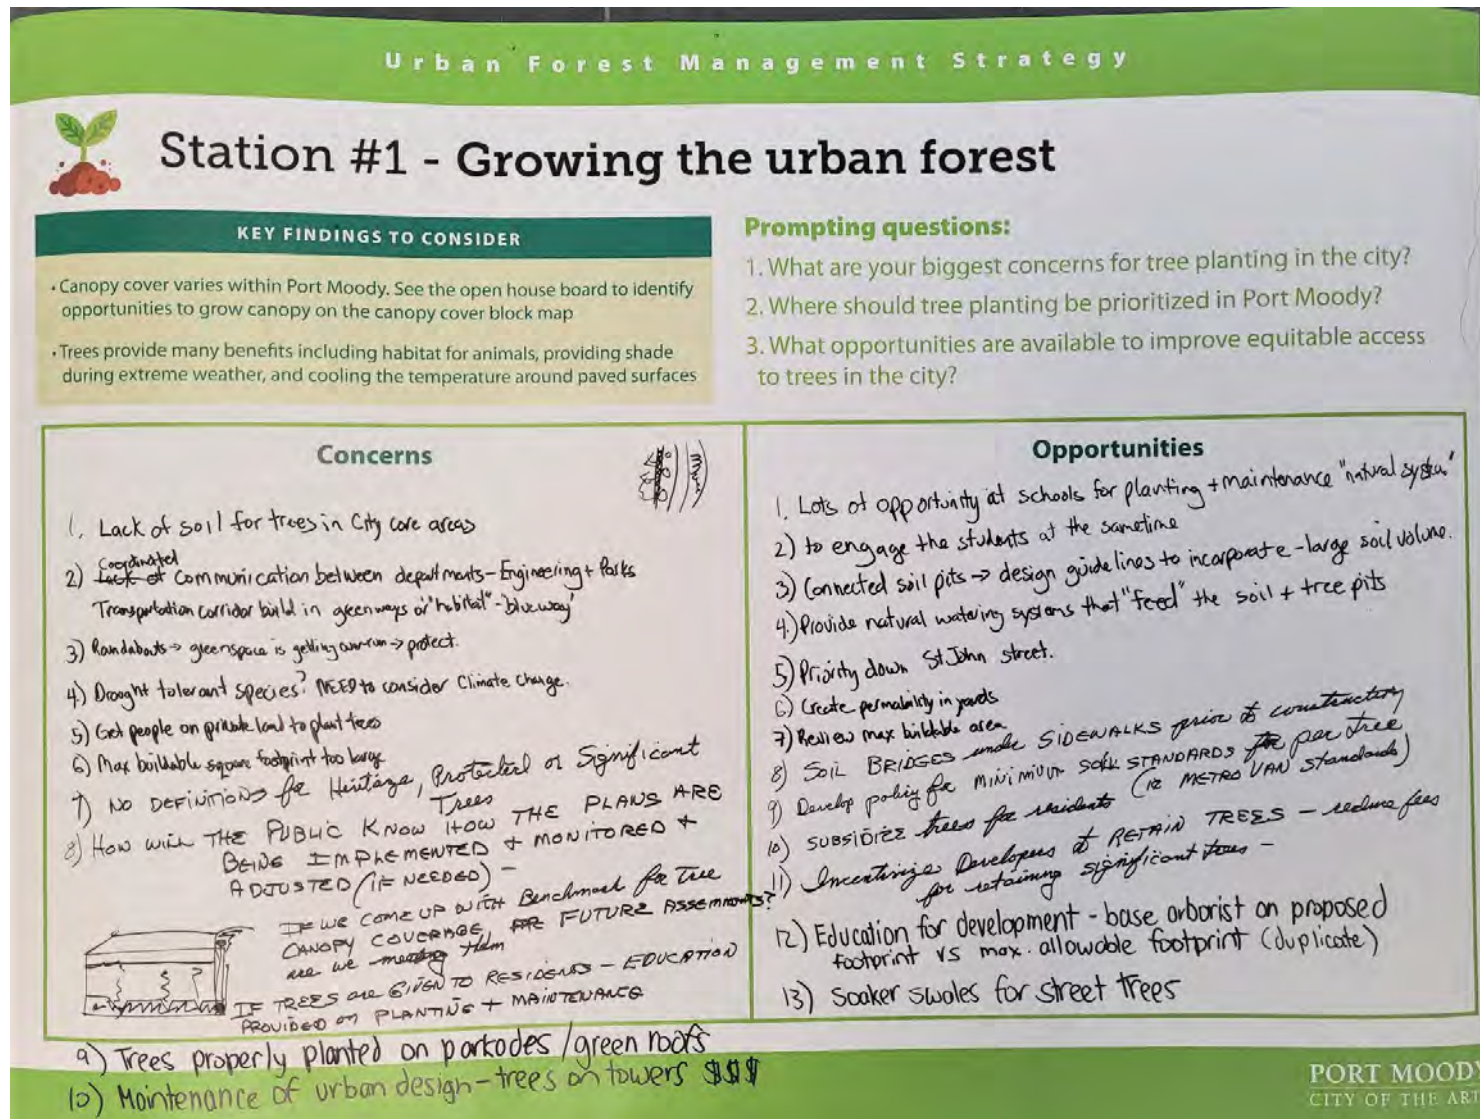 Urban Forest Management Strategy
Station #1 - Growing the urban forest
KEY FINDINGS TO CONSIDER
• Canopy cover varies within Port Moody. See the open house board to identify
opportunities to grow canopy on the canopy cover block map
• Trees provide many benefits including habitat for animals, providing shade
during extreme weather, and cooling the temperature around paved surfaces
Prompting questions:
1. What are your biggest concerns for tree planting in the city?
2. Where should tree planting be prioritized in Port Moody?
3. What opportunities are available to improve equitable access
to trees in the city?
Concerns
1. Lack of soil for trees in City core areas
Coordinated
2) Lack of communication between departments - Engineering + Parks
Transportation corridor build in greenways or "habitat" - 'blueway'
3) Roundabouts → greenspace is getting overrun → protect.
4) Drought tolerant species? NEED to consider Climate Change.
5) Get people on private land to plant trees
6) Max buildable square footprint too large
7) NO DEFINITIONS for Heritage, Protected or Significant
Trees
8) HOW WILL THE PUBLIC KNOW HOW THE PLANS ARE
BEING IMPLEMENTED + MONITORED +
ADJUSTED (IF NEEDED) -
IF WE COME UP WITH Benchmark for Tree
CANOPY COVERAGE, FUTURE ASSESSMENTS?
are we meeting them
IF TREES are GIVEN TO RESIDENTS - EDUCATION
PROVIDED on PLANTING + MAINTENANCE
9) Trees properly planted on parkades / green roofs
10) Maintenance of urban design - trees on towers $$$
Opportunities
1. Lots of opportunity at schools for planting + maintenance "natural
2) to engage the students at the sametime
3) Connected soil pits → design guidelines to incorporate - large soil volume.
4.) Provide natural watering systems that "feed" the soil + tree pits
5) Priority down St John street.
6) Create permability in yards
7) Review max buildable area
8) SOIL BRIDGES under SIDEWALKS prior to construction
9) Develop policy for MINIMUM SOIL STANDARDS for per tree
(ie METRO VAN standards)
10) SUBSIDIZE trees for residents
11) Incentivize Developers to RETAIN TREES - reduce fees
for retaining significant trees -
12) Education for development - base arborist on proposed
footprint vs max. allowable footprint (duplicate)
13) Soaker swales for street trees
PORT MOODY
CITY OF THE ART